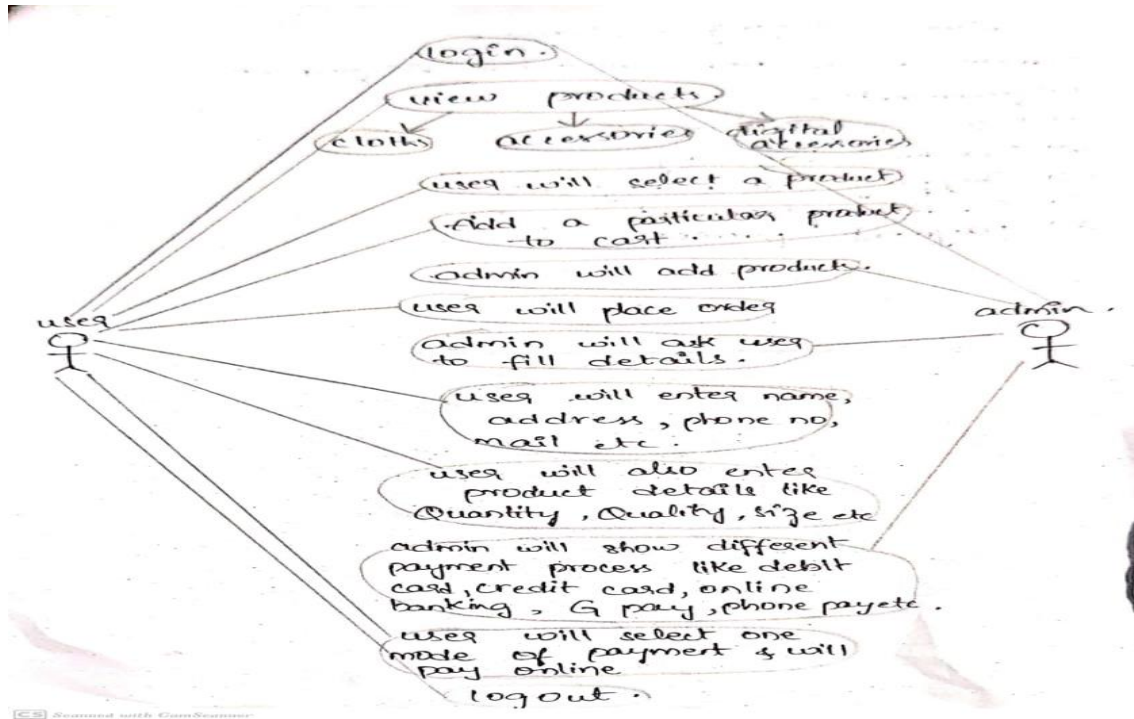 login.
view products.
cloths
accessories
digital
accessories
user will select a product
Add a particular product
to cart.
admin will add products.
user
user will place order
admin.
admin will ask user
to fill details.
user will enter name,
address, phone no,
mail etc.
user will also enter
product details like
Quantity, Quality, size etc
admin will show different
payment process like debit
card, credit card, online
banking, G pay, phone pay etc.
user will select one
mode of payment & will
pay online
logout.
CS Scanned with CamScanner